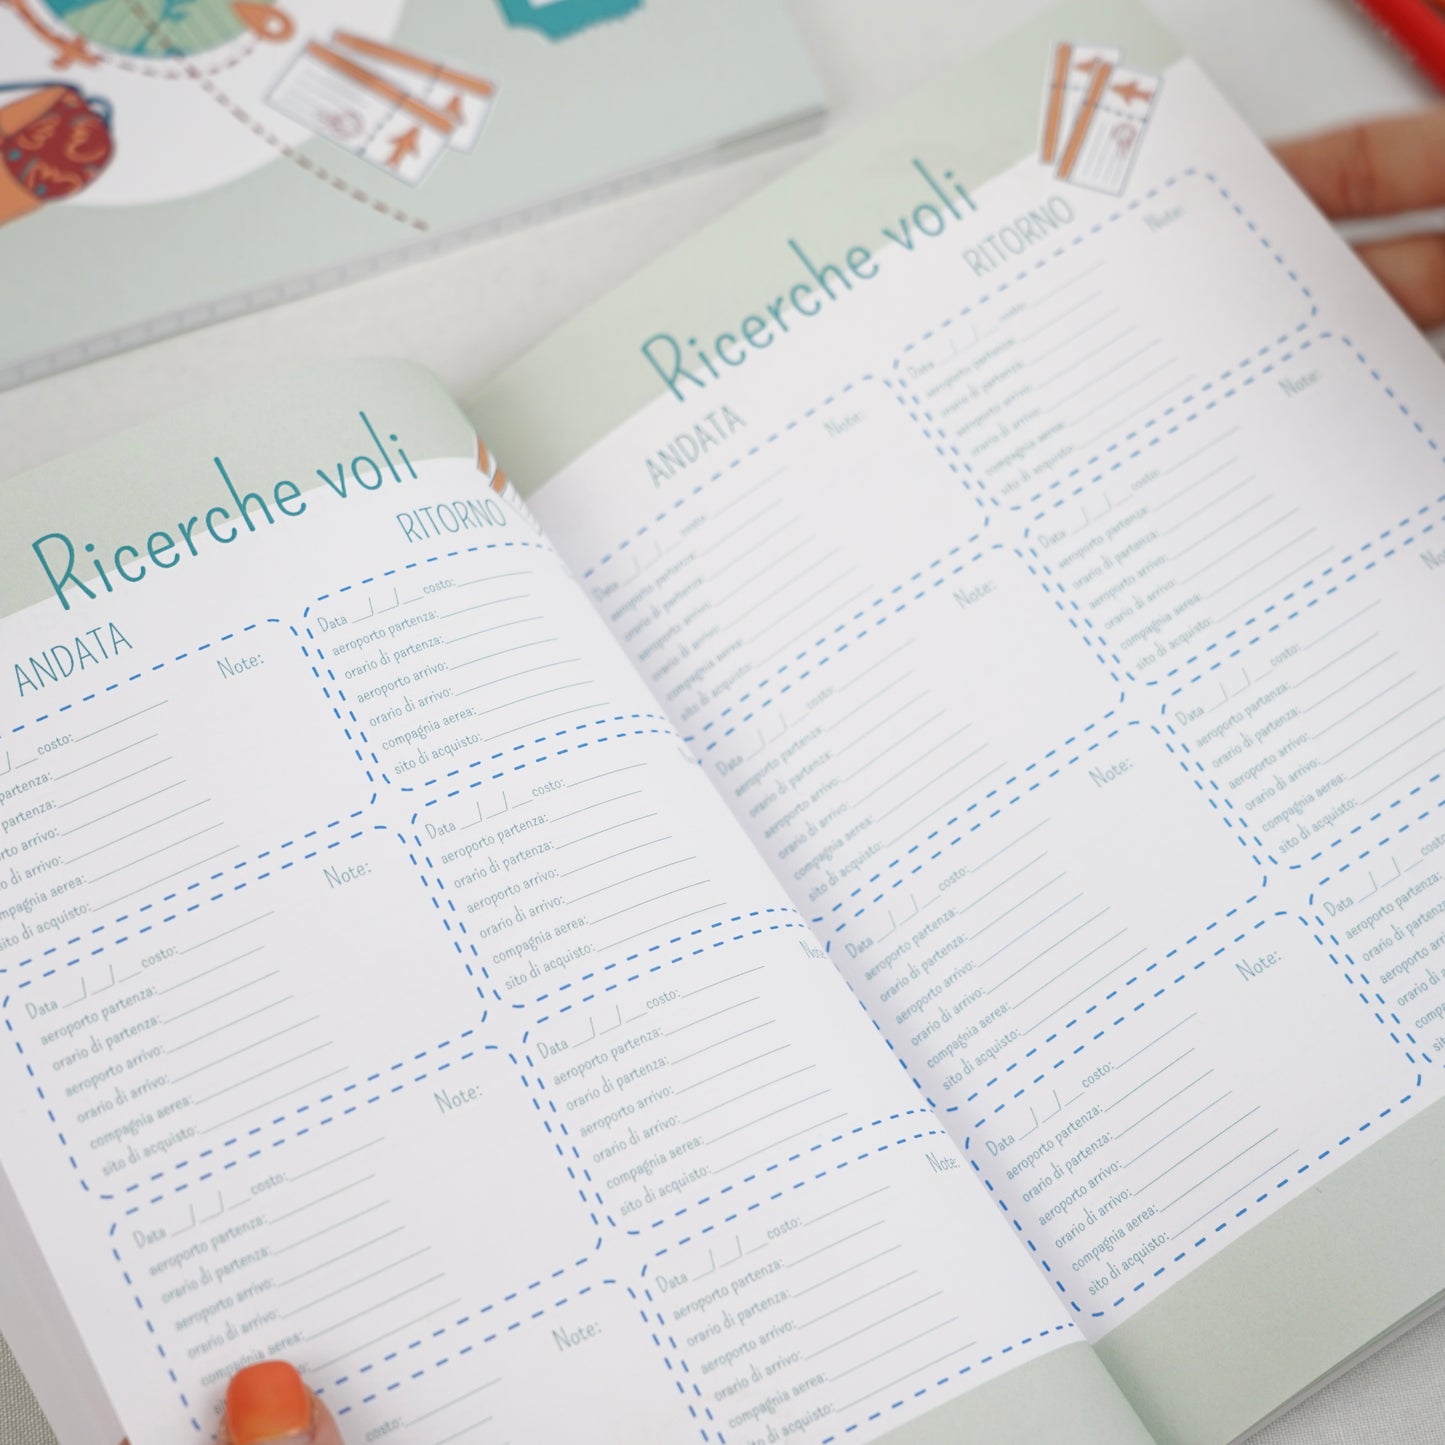 Ricerche voli
ANDATA
RITORNO
Note:
costo:
partenza:
partenza:
arrivo:
di arrivo:
aerea:
sito di acquisto:
Data __/__/__ costo:
aeroporto partenza:
orario di partenza:
aeroporto arrivo:
orario di arrivo:
compagnia aerea:
sito di acquisto:
Note:
Data __/__/__ costo:
aeroporto partenza:
orario di partenza:
aeroporto arrivo:
orario di arrivo:
compagnia aerea:
sito di acquisto:
Data __/__/__ costo:
aeroporto partenza:
orario di partenza:
aeroporto arrivo:
orario di arrivo:
compagnia aerea:
sito di acquisto:
Note:
Note:
Data __/__/__ costo:
aeroporto partenza:
orario di partenza:
aeroporto arrivo:
orario di arrivo:
compagnia aerea:
Data __/__/__ costo:
aeroporto partenza:
orario di partenza:
aeroporto arrivo:
orario di arrivo:
compagnia aerea:
sito di acquisto:
Note:
Note:
costo:
Data __/__/__ costo:
aeroporto partenza:
orario di partenza:
aeroporto arrivo:
orario di arrivo:
compagnia aerea:
sito di acquisto:
Ricerche voli
ANDATA
RITORNO
Note:
Data __/__/__ costo:
aeroporto partenza:
orario di partenza:
aeroporto arrivo:
orario di arrivo:
compagnia aerea:
sito di acquisto:
Note:
Data __/__/__ costo:
aeroporto partenza:
orario di partenza:
aeroporto arrivo:
orario di arrivo:
compagnia aerea:
sito di acquisto:
Note:
Data __/__/__ costo:
aeroporto partenza:
orario di partenza:
aeroporto arrivo:
orario di arrivo:
compagnia aerea:
sito di acquisto:
Note:
Data __/__/__ costo:
aeroporto partenza:
orario di partenza:
aeroporto arrivo:
orario di arrivo:
compagnia aerea:
sito di acquisto:
Note:
Data __/__/__ costo:
aeroporto partenza:
orario di partenza:
aeroporto arrivo:
orario di arrivo:
compagnia aerea:
sito di acquisto:
Note:
Data __/__/__ costo:
aeroporto partenza:
orario di partenza:
aeroporto arrivo:
orario di arrivo:
compagnia aerea:
sito di acquisto:
Note:
Data __/__/__ costo:
aeroporto partenza:
orario di partenza:
aeroporto arrivo:
orario di arrivo:
compagnia aerea:
sito di acquisto:
Data __/__/__
aeroporto partenza:
orario di
aeroporto